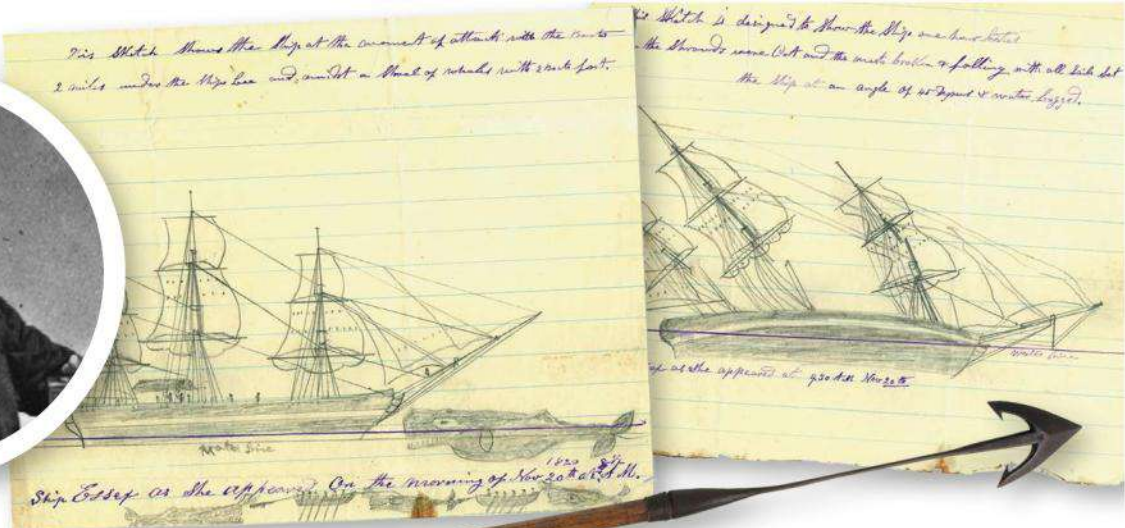 This Sketch Shows the Ship at the moment of attack with the boats
2 miles under the Ships Lee and amidst a Shoal of whales with 2 boats fast.
Water line
Ship Essex as She appeared On the morning of Nov 20th 1820 at 8½ A.M.
Sketch is designed to Show the Ship one hour later
the Shrouds were Cut and the masts broken & falling with all Sails Set
the Ship at an angle of 45 Degrees & water logged.
water line
as She appeared at 9.30 AM Nov 20th